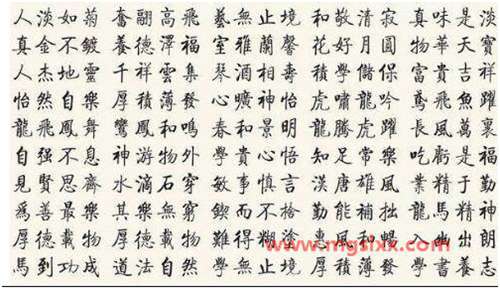 人淡如菊 奮翮高飛 藝無止境 和敬清寂 真味是淡
真金不鍍 養德澤福 室雅蘭馨 花好月圓 物華天寶
人杰地靈 千祥雲集 琴 相壽 學儲保 富貴吉祥
怡然自樂 厚積薄發 曠神怡 虎嘯龍吟 鳶飛魚躍
龍飛鳳舞 鸞鳳和鳴 春和景明 龍騰虎躍 長風萬裏
自强不息 神游物外 學貴心悟 知足常樂 吃虧是福
見賢思齊 水滴石穿 敏事慎言 漢唐雄風 業精于勤
爲善最樂 其樂無窮 鍥而不捨 勤能補拙 龍馬精神
厚德載物 厚德載物 難得糊塗 惠風和暢 入 出朗
馬到功成 道法自然 學無止境 厚積薄發 學書養志
www.mgsixx.com